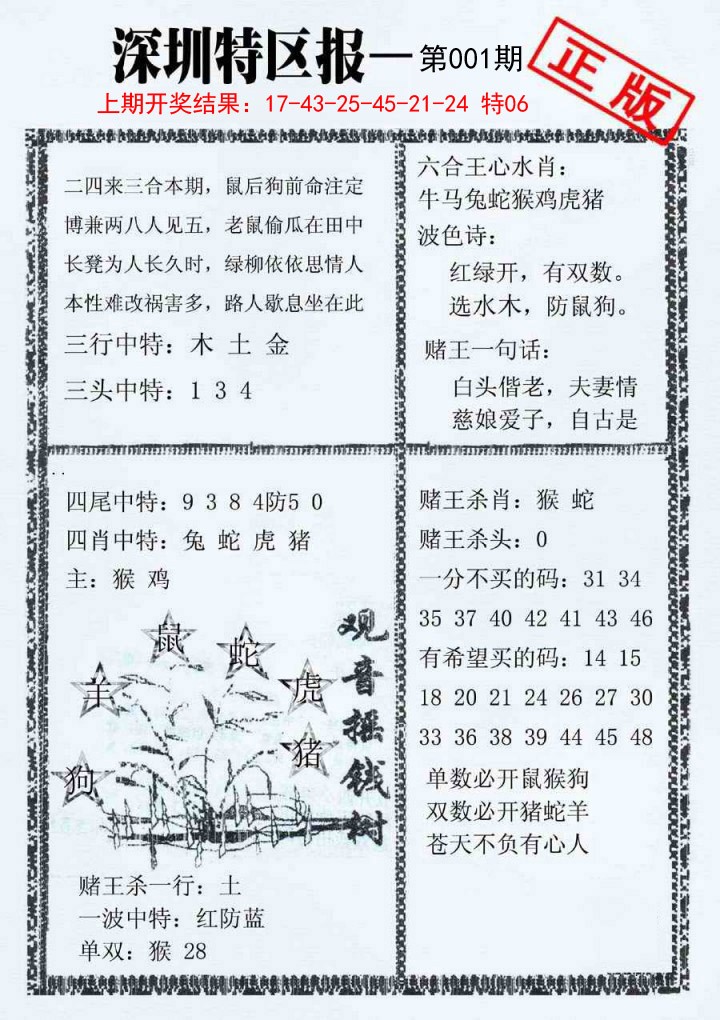 深圳特区报—第001期
正版
上期开奖结果：17-43-25-45-21-24 特06
二四来三合本期，鼠后狗前命注定
博兼两八人见五，老鼠偷瓜在田中
长凳为人长久时，绿柳依依思情人
本性难改祸害多，路人歇息坐在此
三行中特：木 土 金
三头中特：1 3 4
六合王心水肖：
牛马兔蛇猴鸡虎猪
波色诗：
红绿开，有双数。
选水木，防鼠狗。
赌王一句话：
白头偕老，夫妻情
慈娘爱子，自古是
四尾中特：9 3 8 4防5 0
四肖中特：兔 蛇 虎 猪
主：猴 鸡
鼠
蛇
羊
虎
猪
狗
观音摇钱树
赌王杀一行：土
一波中特：红防蓝
单双：猴 28
赌王杀肖：猴 蛇
赌王杀头：0
一分不买的码：31 34
35 37 40 42 41 43 46
有希望买的码：14 15
18 20 21 24 26 27 30
33 36 38 39 44 45 48
单数必开鼠猴狗
双数必开猪蛇羊
苍天不负有心人